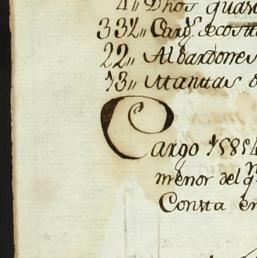 4,, Dhos guar
332,, Carg.s de costa
22,, Albardones
73,, Mantas d
Cargo 1585
menor del q
Consta en